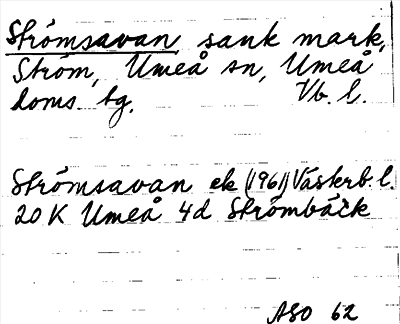 Strömsavan sank mark,
Ström, Umeå sn, Umeå
doms. tg. Vb. l.
Strömsavan ek (1961) Västerb. l.
20 K Umeå 4d Strömbäck
ASO 62